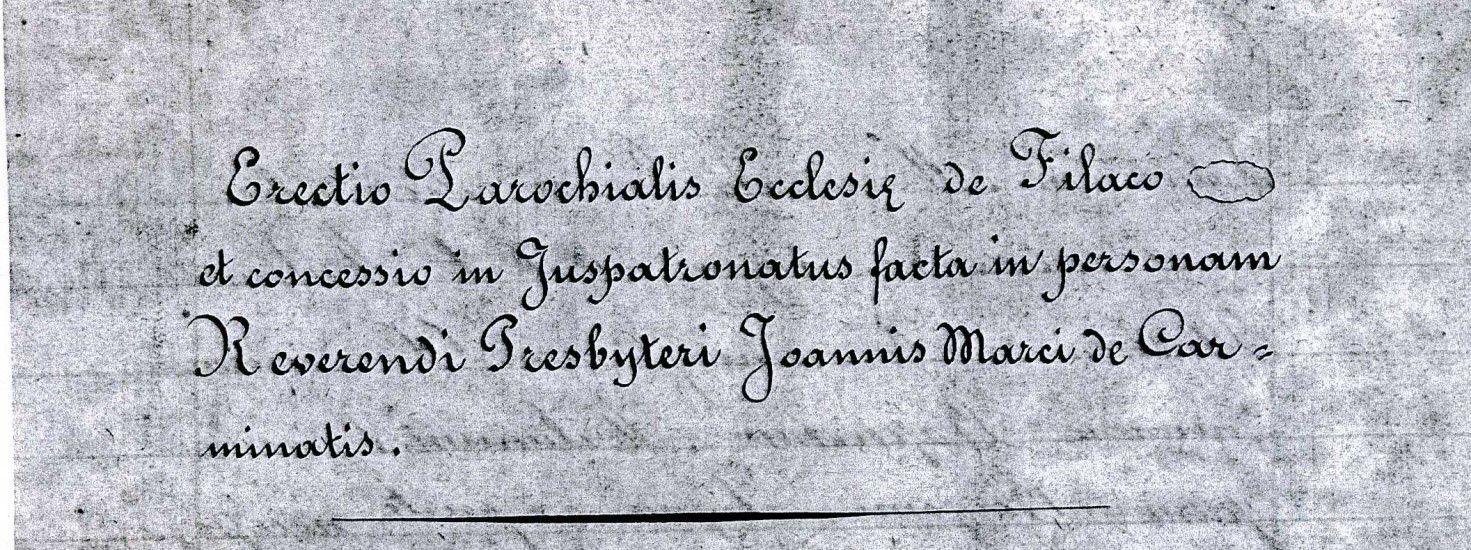 Erectio Parochialis Ecclesię de Filaco
et concessio in Juspatronatus facta in personam
Reverendi Presbyteri Joannis Marci de Car=
minatis.